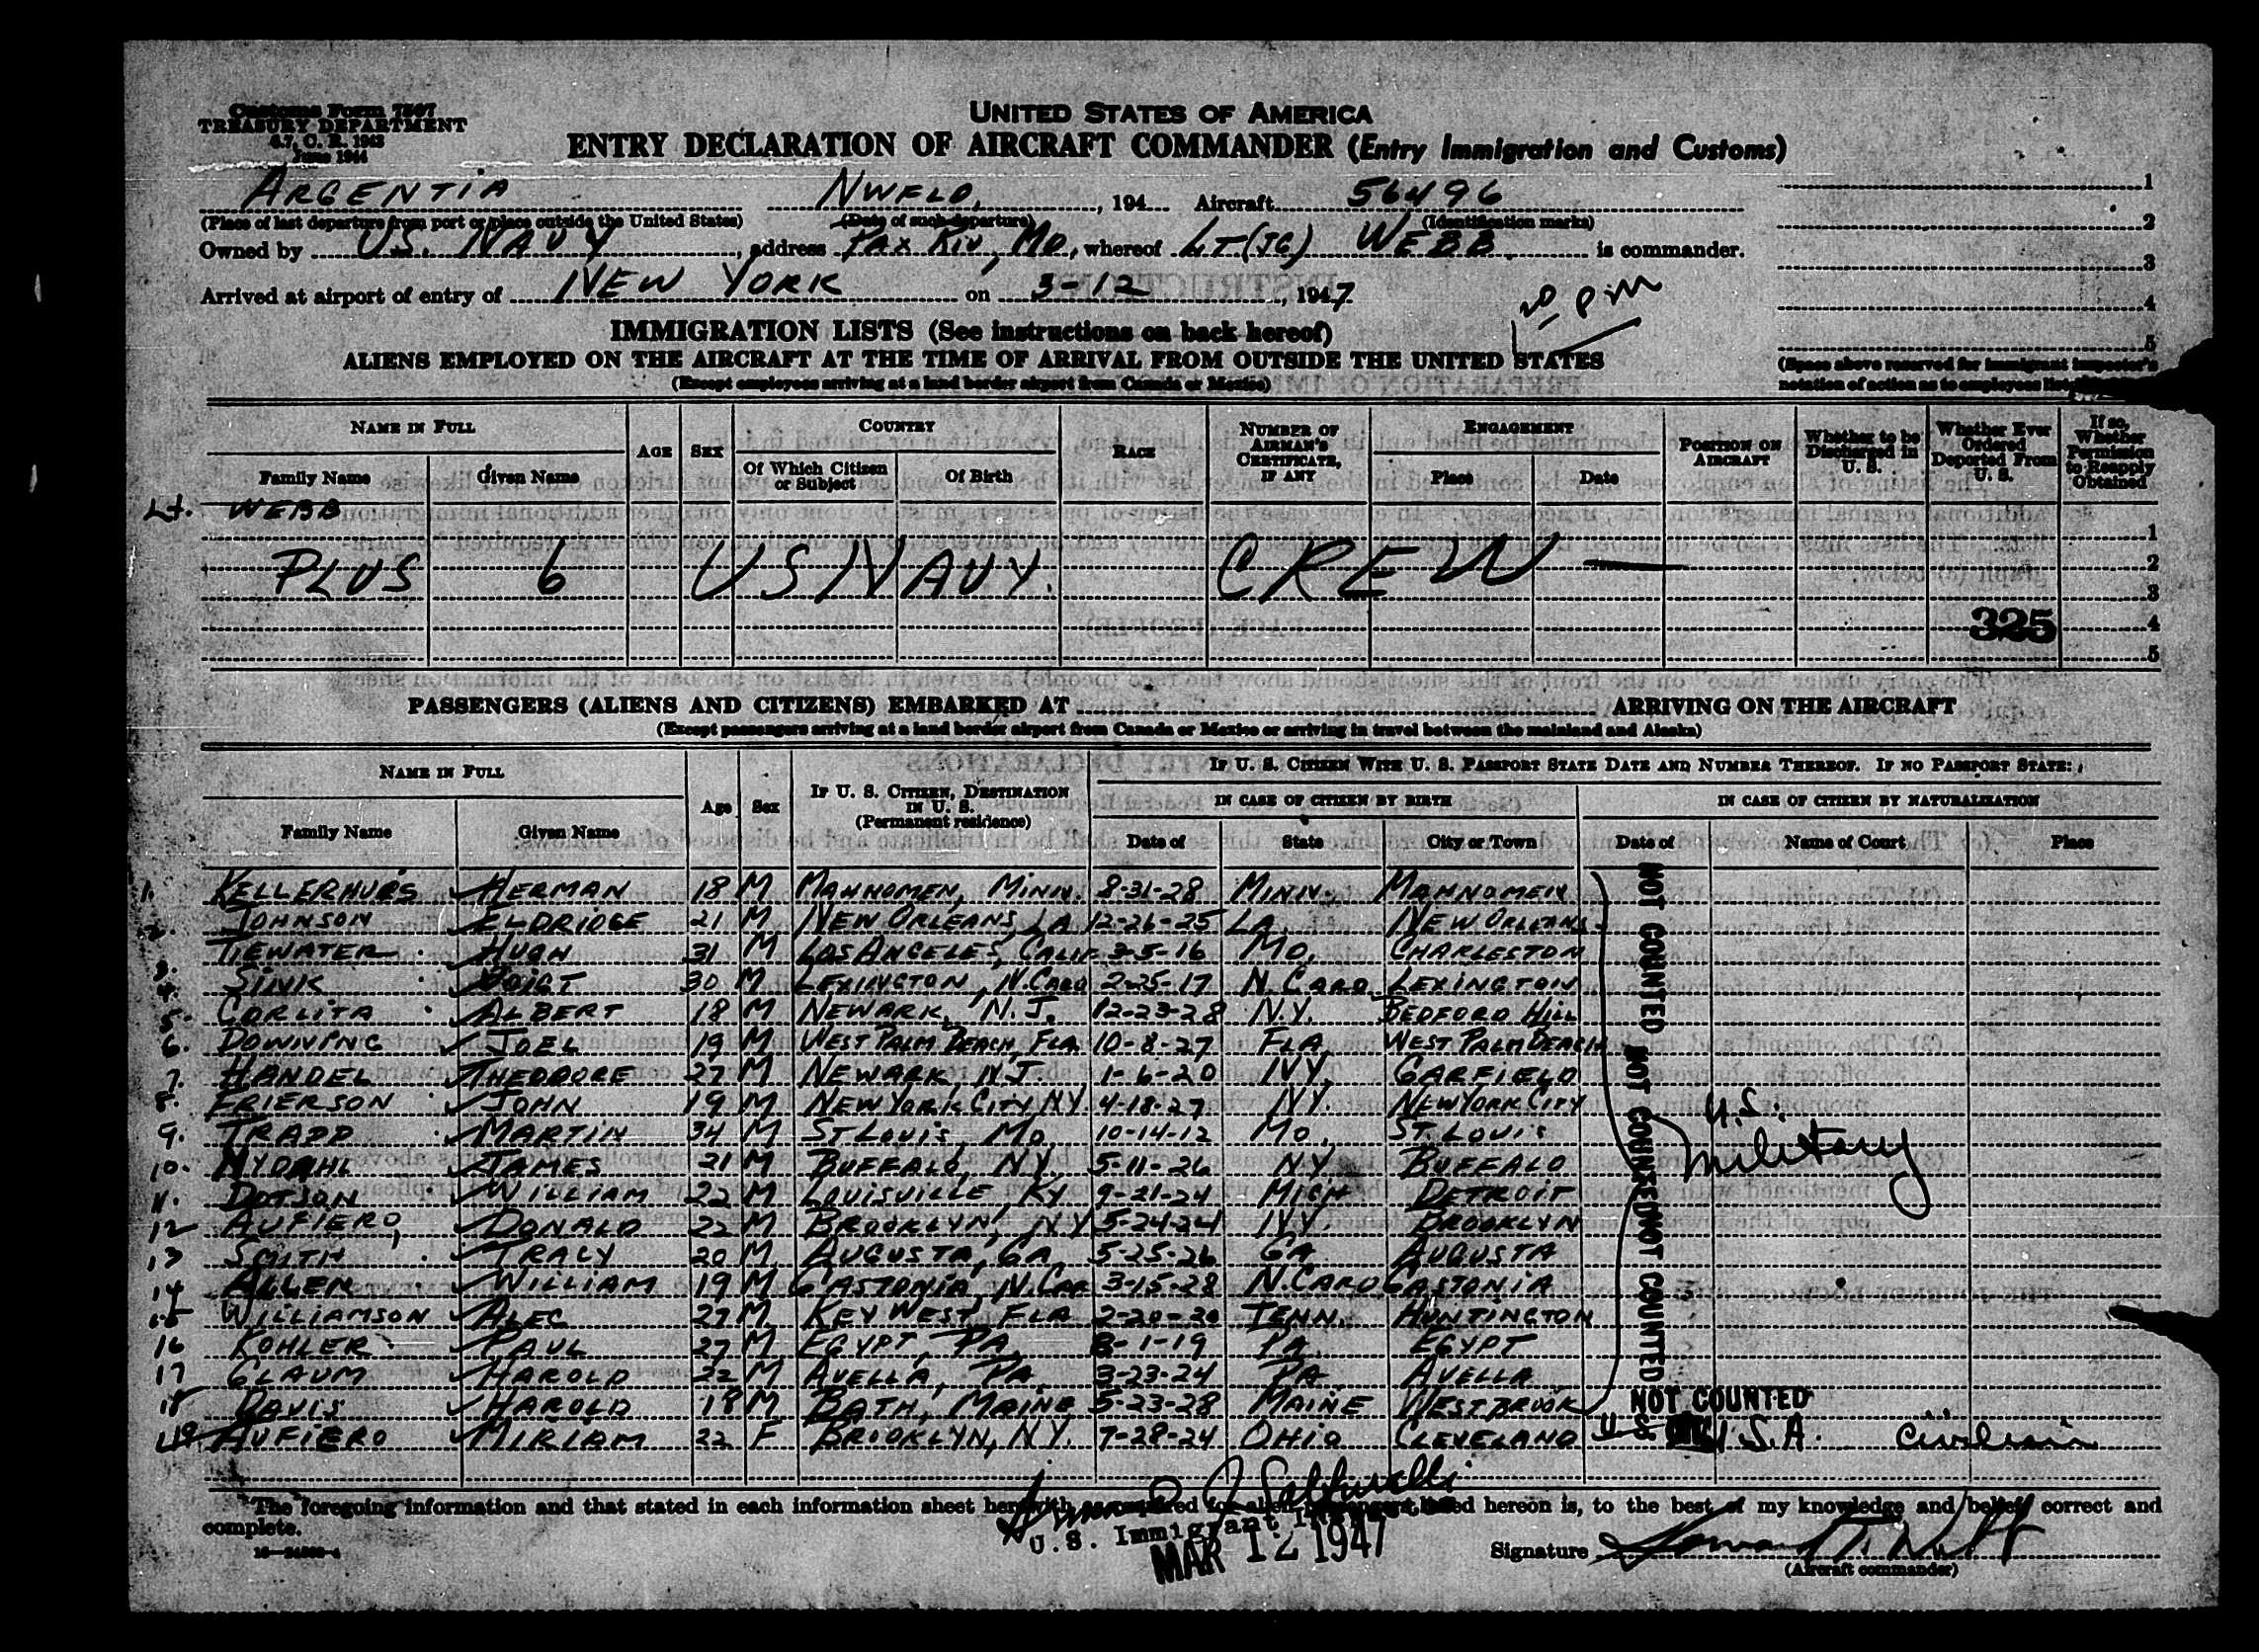 Customs Form 7507
TREASURY DEPARTMENT
June 1944
UNITED STATES OF AMERICA
ENTRY DECLARATION OF AIRCRAFT COMMANDER (Entry Immigration and Customs)
ARGENTIA NWFLD, , 194 Aircraft 56496
(Place of last departure from port or place outside the United States) (Date of such departure) (Identification marks)
Owned by U.S. NAVY , address PAX RIV, MD, whereof LT (JG) WEBB is commander.
Arrived at airport of entry of NEW YORK on 3-12 , 1947
PM
1
2
3
4
5
(Space above reserved for immigrant inspector's
notation of action as to employees
IMMIGRATION LISTS (See instructions on back hereof)
ALIENS EMPLOYED ON THE AIRCRAFT AT THE TIME OF ARRIVAL FROM OUTSIDE THE UNITED STATES
(Except employees arriving at a land border airport from Canada or Mexico)
NAME IN FULL AGE SEX COUNTRY RACE NUMBER OF AIRMAN'S CERTIFICATE, IF ANY ENGAGEMENT POSITION ON AIRCRAFT Whether to be Discharged in U. S. Whether Ever Ordered Deported From U. S. If so, Whether Permission to Reapply Obtained
Family Name Given Name Of Which Citizen or Subject Of Birth Place Date
Lt. WEBB 1
PLUS 6 US NAVY. CREW — 2
3
325 4
5
PASSENGERS (ALIENS AND CITIZENS) EMBARKED AT ARRIVING ON THE AIRCRAFT
(Except passengers arriving at a land border airport from Canada or Mexico or arriving in travel between the mainland and Alaska)
NAME IN FULL Age Sex IF U. S. CITIZEN, DESTINATION IN U. S. (Permanent residence) IF U. S. CITIZEN WITH U. S. PASSPORT STATE DATE AND NUMBER THEREOF. IF NO PASSPORT STATE:
IN CASE OF CITIZEN BY BIRTH IN CASE OF CITIZEN BY NATURALIZATION
Family Name Given Name Date of State City or Town Date of Name of Court Place
1. KELLERHUES HERMAN 18 M MAHNOMEN, MINN. 8-31-28 MINN. MAHNOMEN
2. JOHNSON ELDRIDGE 21 M NEW ORLEANS, LA 12-26-25 LA. NEW ORLEANS
3. TIEWATER HUGH 31 M LOS ANGELES, CALIF 3-5-16 MO. CHARLESTON
4. SINK VOIGT 30 M LEXINGTON, N.CARO 2-25-17 N.CARO LEXINGTON
5. CORLITA ALBERT 18 M NEWARK, N.J. 12-23-28 N.Y. BEDFORD HILL
6. DOWNING JOEL 19 M WEST PALM BEACH, FLA. 10-8-27 FLA. WEST PALM BEACH
7. HANDEL THEODORE 27 M NEWARK, N.J. 1-6-20 NY. GARFIELD
8. FRIERSON JOHN 19 M NEW YORK CITY, NY. 4-18-27 NY. NEW YORK CITY
9. TRAPP MARTIN 34 M ST LOUIS, MO. 10-14-12 MO. ST. LOUIS
10. NYDAHL JAMES 21 M BUFFALO, NY. 5-11-26 NY BUFFALO
11. DOTSON WILLIAM 22 M LOUISVILLE KY 9-21-24 MICH DETROIT
12 AUFIERO, DONALD 22 M BROOKLYN, NY 5-24-24 NY. BROOKLYN
13 SMITH TRALY 20 M AUGUSTA, GA 5-25-26 GA AUGUSTA
14 ALLEN WILLIAM 19 M GASTONIA, N.CAR 3-15-28 N.CARO GASTONIA
15 WILLIAMSON ALEC 27 M KEY WEST, FLA 2-20-20 TENN. HUNTINGTON
16 KOHLER PAUL 27 M EGYPT, PA. 8-1-19 PA. EGYPT
17 GLAUM HAROLD 22 M AVELLA, PA 3-23-24 PA AVELLA
18 DAVIS HAROLD 18 M BATH, MAINE 5-23-28 MAINE WESTBROOK
19 AUFIERO MIRIAM 22 F BROOKLYN, N.Y. 7-28-24 OHIO CLEVELAND U.S.A. civilian
NOT COUNTED NOT COUNTED NOT COUNTED
U.S.
military
NOT COUNTED
The foregoing information and that stated in each information sheet herewith as required for alien passengers listed hereon is, to the best of my knowledge and belief, correct and
complete.
U. S. Immigrant Inspector
MAR 12 1947
Signature
(Aircraft commander)